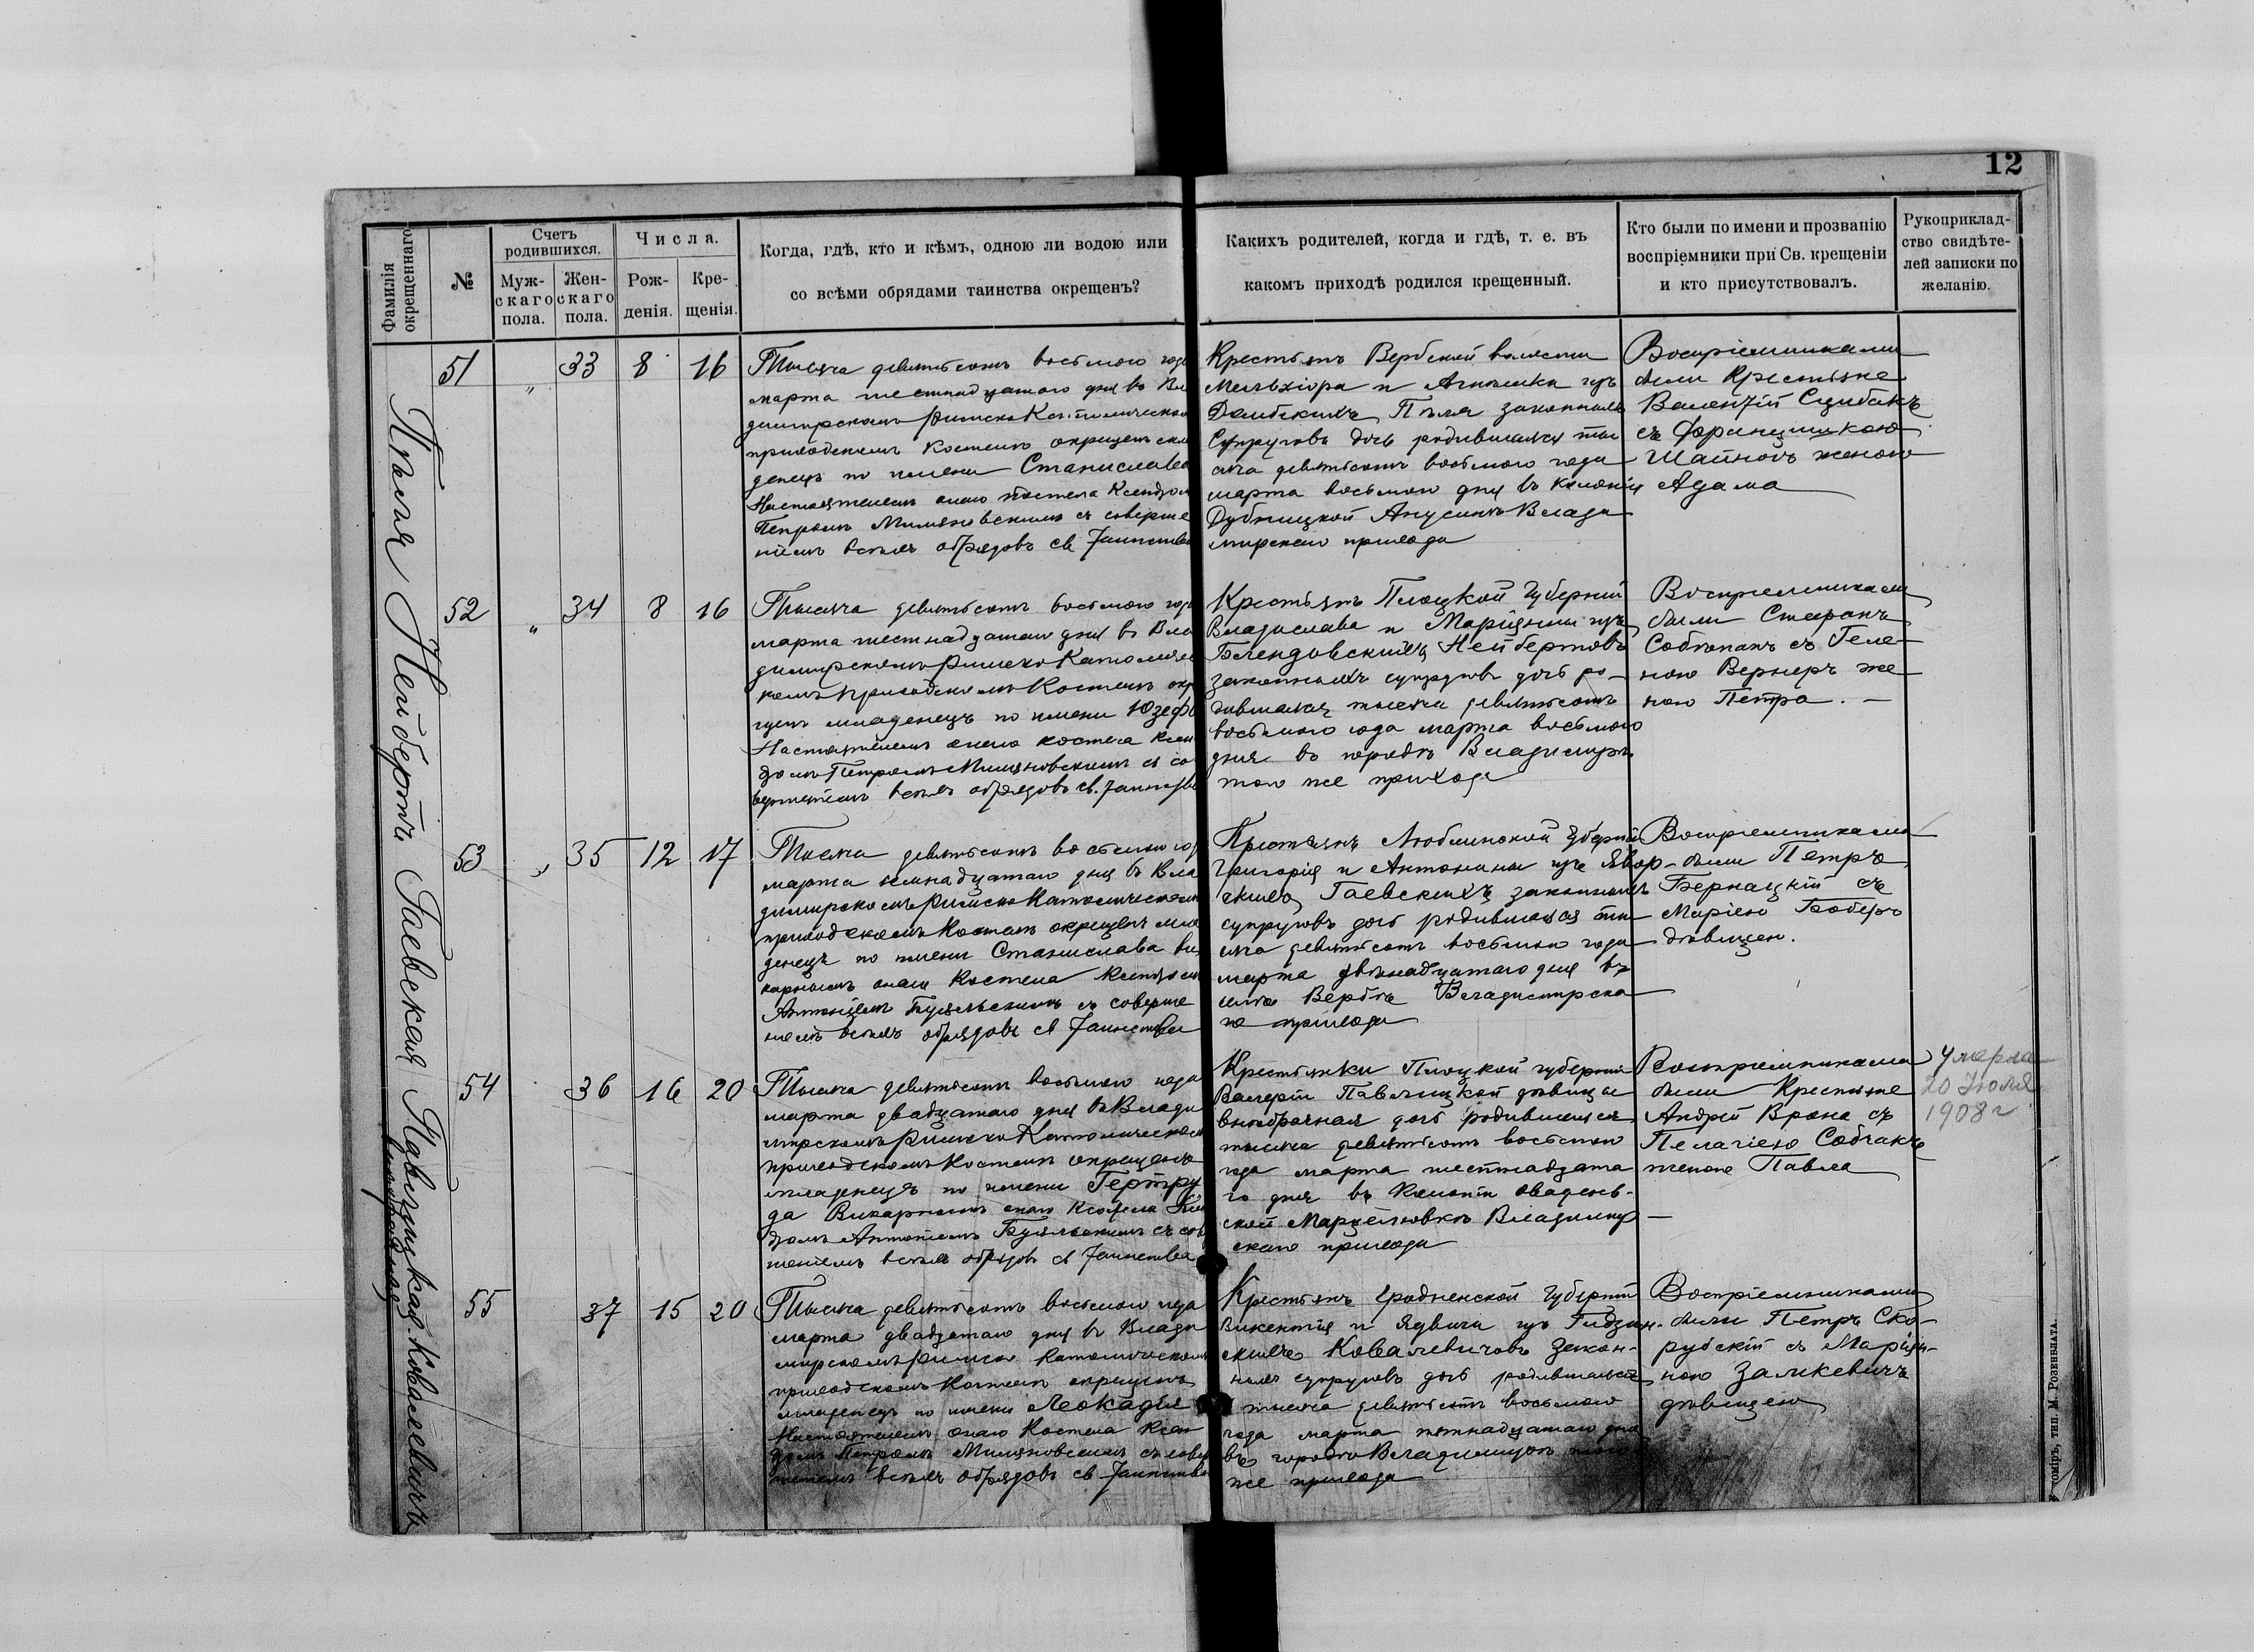 12
Фамилія окрещеннаго
№
Счетъ родившихся.
Мужскаго пола.
Женскаго пола.
Числа.
Рожденія.
Крещенія.
Когда, гдѣ, кто и кѣмъ, одною ли водою или
со всѣми обрядами таинства окрещенъ?
Какихъ родителей, когда и гдѣ, т. е. въ
какомъ приходѣ родился крещенный.
Кто были по имени и прозванію
воспріемники при Св. крещеніи
и кто присутствовалъ.
Рукоприклад-
ство свидѣте-
лей записки по
желанію.
Нейбертъ Гаевская Павлицкая Ковалевичъ
внѣбрачная
51 " 33 8 16
Тысяча девятьсотъ восьмого года
марта шестнадцатаго дня въ Вла
димірскомъ Римско Католическомъ
приходскомъ Костелѣ окрещенъ мла
денецъ по имени Станислава
Настоятелемъ онаго Костела Ксендзомъ
Петромъ Миляновскимъ съ соверше
ніемъ всѣхъ обрядовъ св Таинства
Крестьянъ Вербской волости
Мельхіора и Агнешки изъ
Пѣля законныхъ
Супруговъ дочь родившаяся ты
сяча девятьсотъ восьмого года
марта восьмого дня въ колоніи
Дубницкой Анусинъ Влади
мірскаго прихода
Воспріемниками
были Крестьяне
Валентій Сцибакъ
съ Францишкою
Шайновъ женою
Адама
52 " 34 8 16
Тысяча девятьсотъ восьмого года
марта шестнадцатаго дня въ Вла
димірскомъ Римско Католичес
комъ приходскомъ Костелѣ окре
щенъ младенецъ по имени Юзефа
Настоятелемъ онаго костела Ксен
дзомъ Петромъ Миляновскимъ съ со
вершеніемъ всѣхъ обрядовъ св. Таинства
Крестьянъ Плоцкой Губерніи
Владислава и Маріянны изъ
Блендовскихъ Нейбертовъ
законныхъ супруговъ дочь ро-
дившаяся тысяча девятьсотъ
восьмого года марта восьмого
дня въ городѣ Владимірѣ
того же прихода
Воспріемниками
были Стефанъ
съ Геле-
ною Вернеръ же
ною Петра. —
53 " 35 12 17
Тысяча девятьсотъ восьмого года
марта семнадцатаго дня въ Вла
димірскомъ Римско Католическомъ
приходскомъ Костелѣ окрещенъ мла
денецъ по имени Станислава Ви
карнымъ онаго Костела Ксендзомъ
Антоніемъ съ соверше
ніемъ всѣхъ обрядовъ св Таинства
Крестьянъ Люблинской Губерніи
Григорія и Антонины изъ Явор-
скихъ Гаевскихъ законныхъ
супруговъ дочь родившаяся ты
сяча девятьсотъ восьмого года
марта двѣнадцатаго дня въ
селѣ Вербѣ Владимірска
го прихода
Воспріемниками
были Петръ
Бернацкій съ
Маріею Боберъ
дѣвицею.
54 36 16 20
Тысяча девятьсотъ восьмого года
марта двадцатаго дня въ Влади
мірскомъ Римско Католическомъ
приходскомъ Костелѣ окрещенъ
младенецъ по имени Гертру
да Викарнымъ онаго Костела Ксен
дзомъ Антоніемъ съ совер
шеніемъ всѣхъ обрядовъ св Таинства
Крестьянки Плоцкой губерніи
Валеріи Павлицкой дѣвицы
внѣбрачная дочь родившаяся
тысяча девятьсотъ восьмого
года марта шестнадцата
го дня въ Колоніи Оваденъ-
ской Марцелювкѣ Владимір
скаго прихода
Воспріемниками
были Крестьяне
Андрей Врона съ
Пелагіею Собчакъ
женою Павла
Умерла
20 Іюля
1908 г
55 37 15 20
Тысяча девятьсотъ восьмого года
марта двадцатаго дня въ Влади
мірскомъ Римско Католическомъ
приходскомъ Костелѣ окрещенъ
младенецъ по имени Леокадія
Настоятелемъ онаго Костела Ксен
дзомъ Петромъ Миляновскимъ съ совер
шеніемъ всѣхъ обрядовъ св Таинства
Крестьянъ Гродненской Губерніи
Викентія и Ядвиги изъ
Ковалевичовъ Закон-
ныхъ супруговъ дочь родившаяся
тысяча девятьсотъ восьмого
года марта пятнадцатаго дня
въ городѣ Владимірѣ того
же прихода
Воспріемниками
были Петръ Ско-
рубскій съ Маріян-
ною Залкевичъ
дѣвицею
томіръ, тип. М. Розенблата.